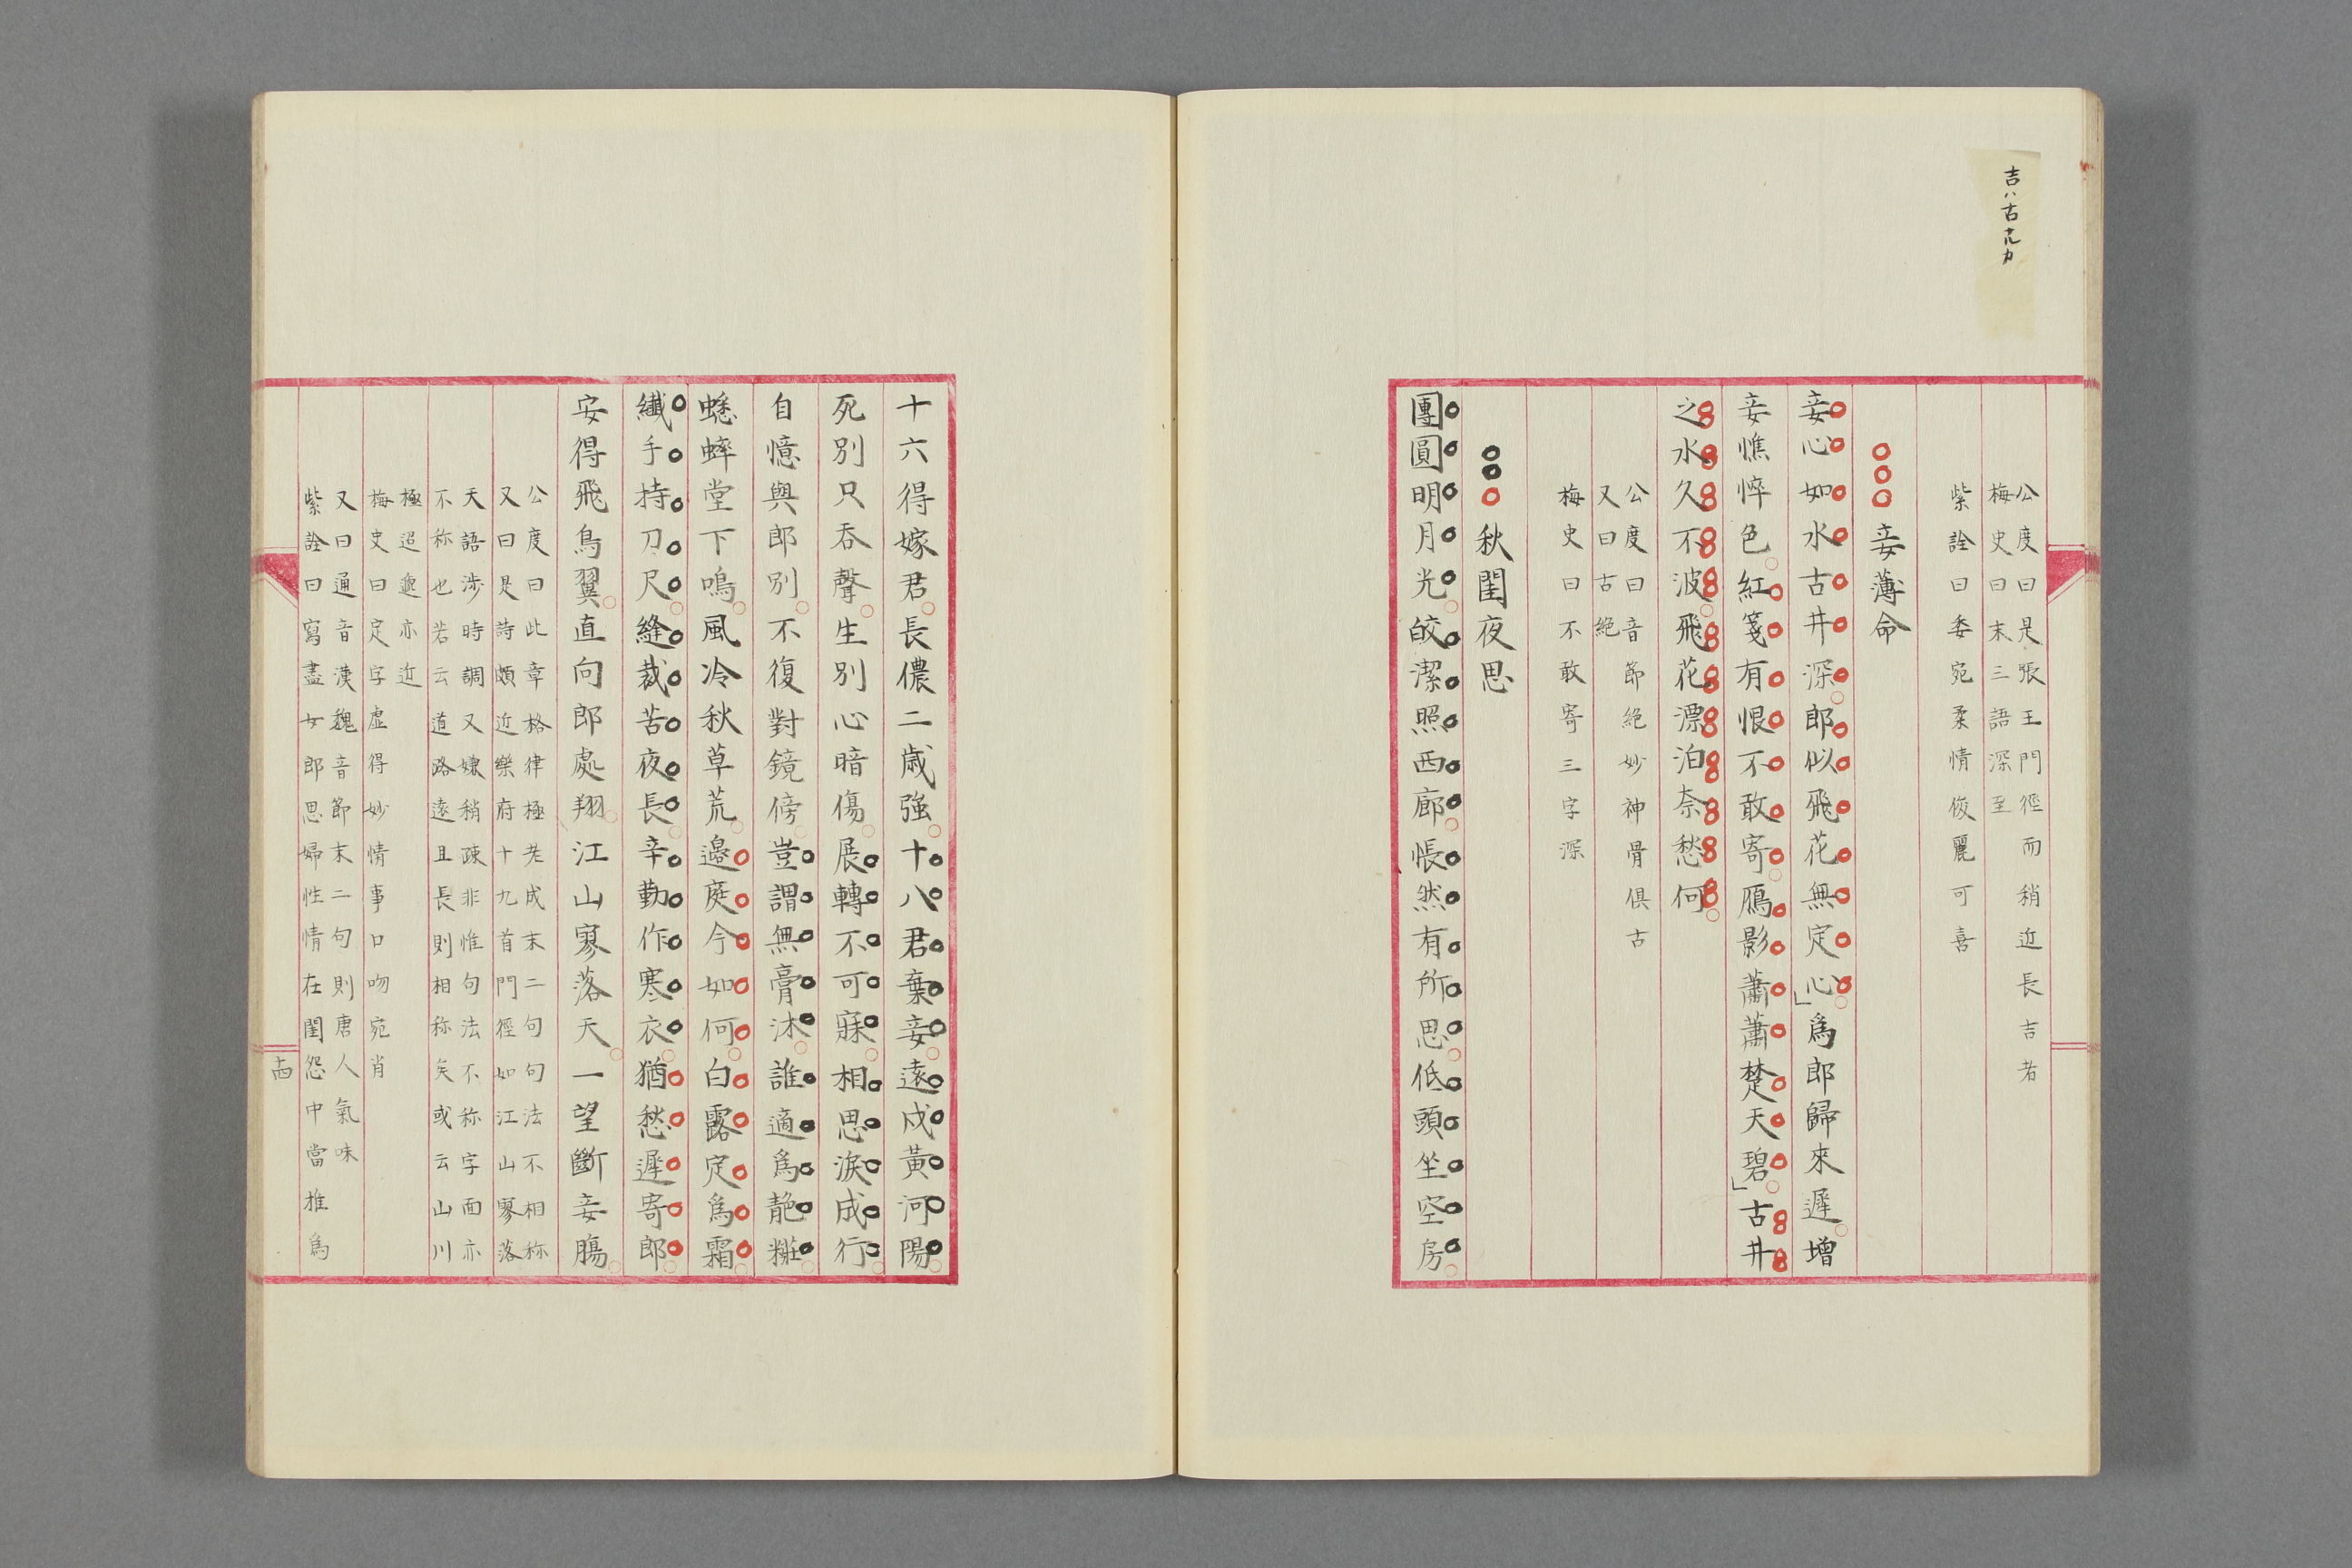 吉ハ古ナル力
公度曰是張王門徑而稍近長吉者
梅史曰末三語深至
紫詮曰委宛柔情俊麗可喜
妾薄命
妾心如水古井深郎似飛花無定心」爲郎歸來遲增
妾憔悴色紅箋有恨不敢寄鴈影蕭蕭楚天碧」古井
之水久不波飛花漂泊奈愁何
公度曰音節絕妙神骨俱古
又曰古絕
梅史曰不敢寄三字深
秋閨夜思
團圓明月光皎潔照西廊悵然有所思低頭坐空房
十六得嫁君長儂二歲強十八君棄妾遠戍黃河陽
死別只吞聲生別心暗傷展轉不可寐相思淚成行
自憶與郎別不復對鏡傍豈謂無膏沐誰適爲靘糚
蟋蟀堂下鳴風冷秋草荒邊庭今如何白露定爲霜
纖手持刀尺縫裁苦夜長辛勤作寒衣猶愁遲寄郎
安得飛鳥翼直向郎處翔江山寥落天一望斷妾腸
公度曰此章格律極老成末二句句法不相称
又曰是詩頗近樂府十九首門徑如江山寥落
天語涉時調又嫌稍疎非惟句法不称字面亦
不称也若云道路遠且長則相称矣或云山川
極迢遞亦近
梅史曰定字虛得妙情事口吻宛肖
又曰通音漢魏音節末二句則唐人氣味
紫詮曰寫盡女郎思婦性情在閨怨中當推爲
十四